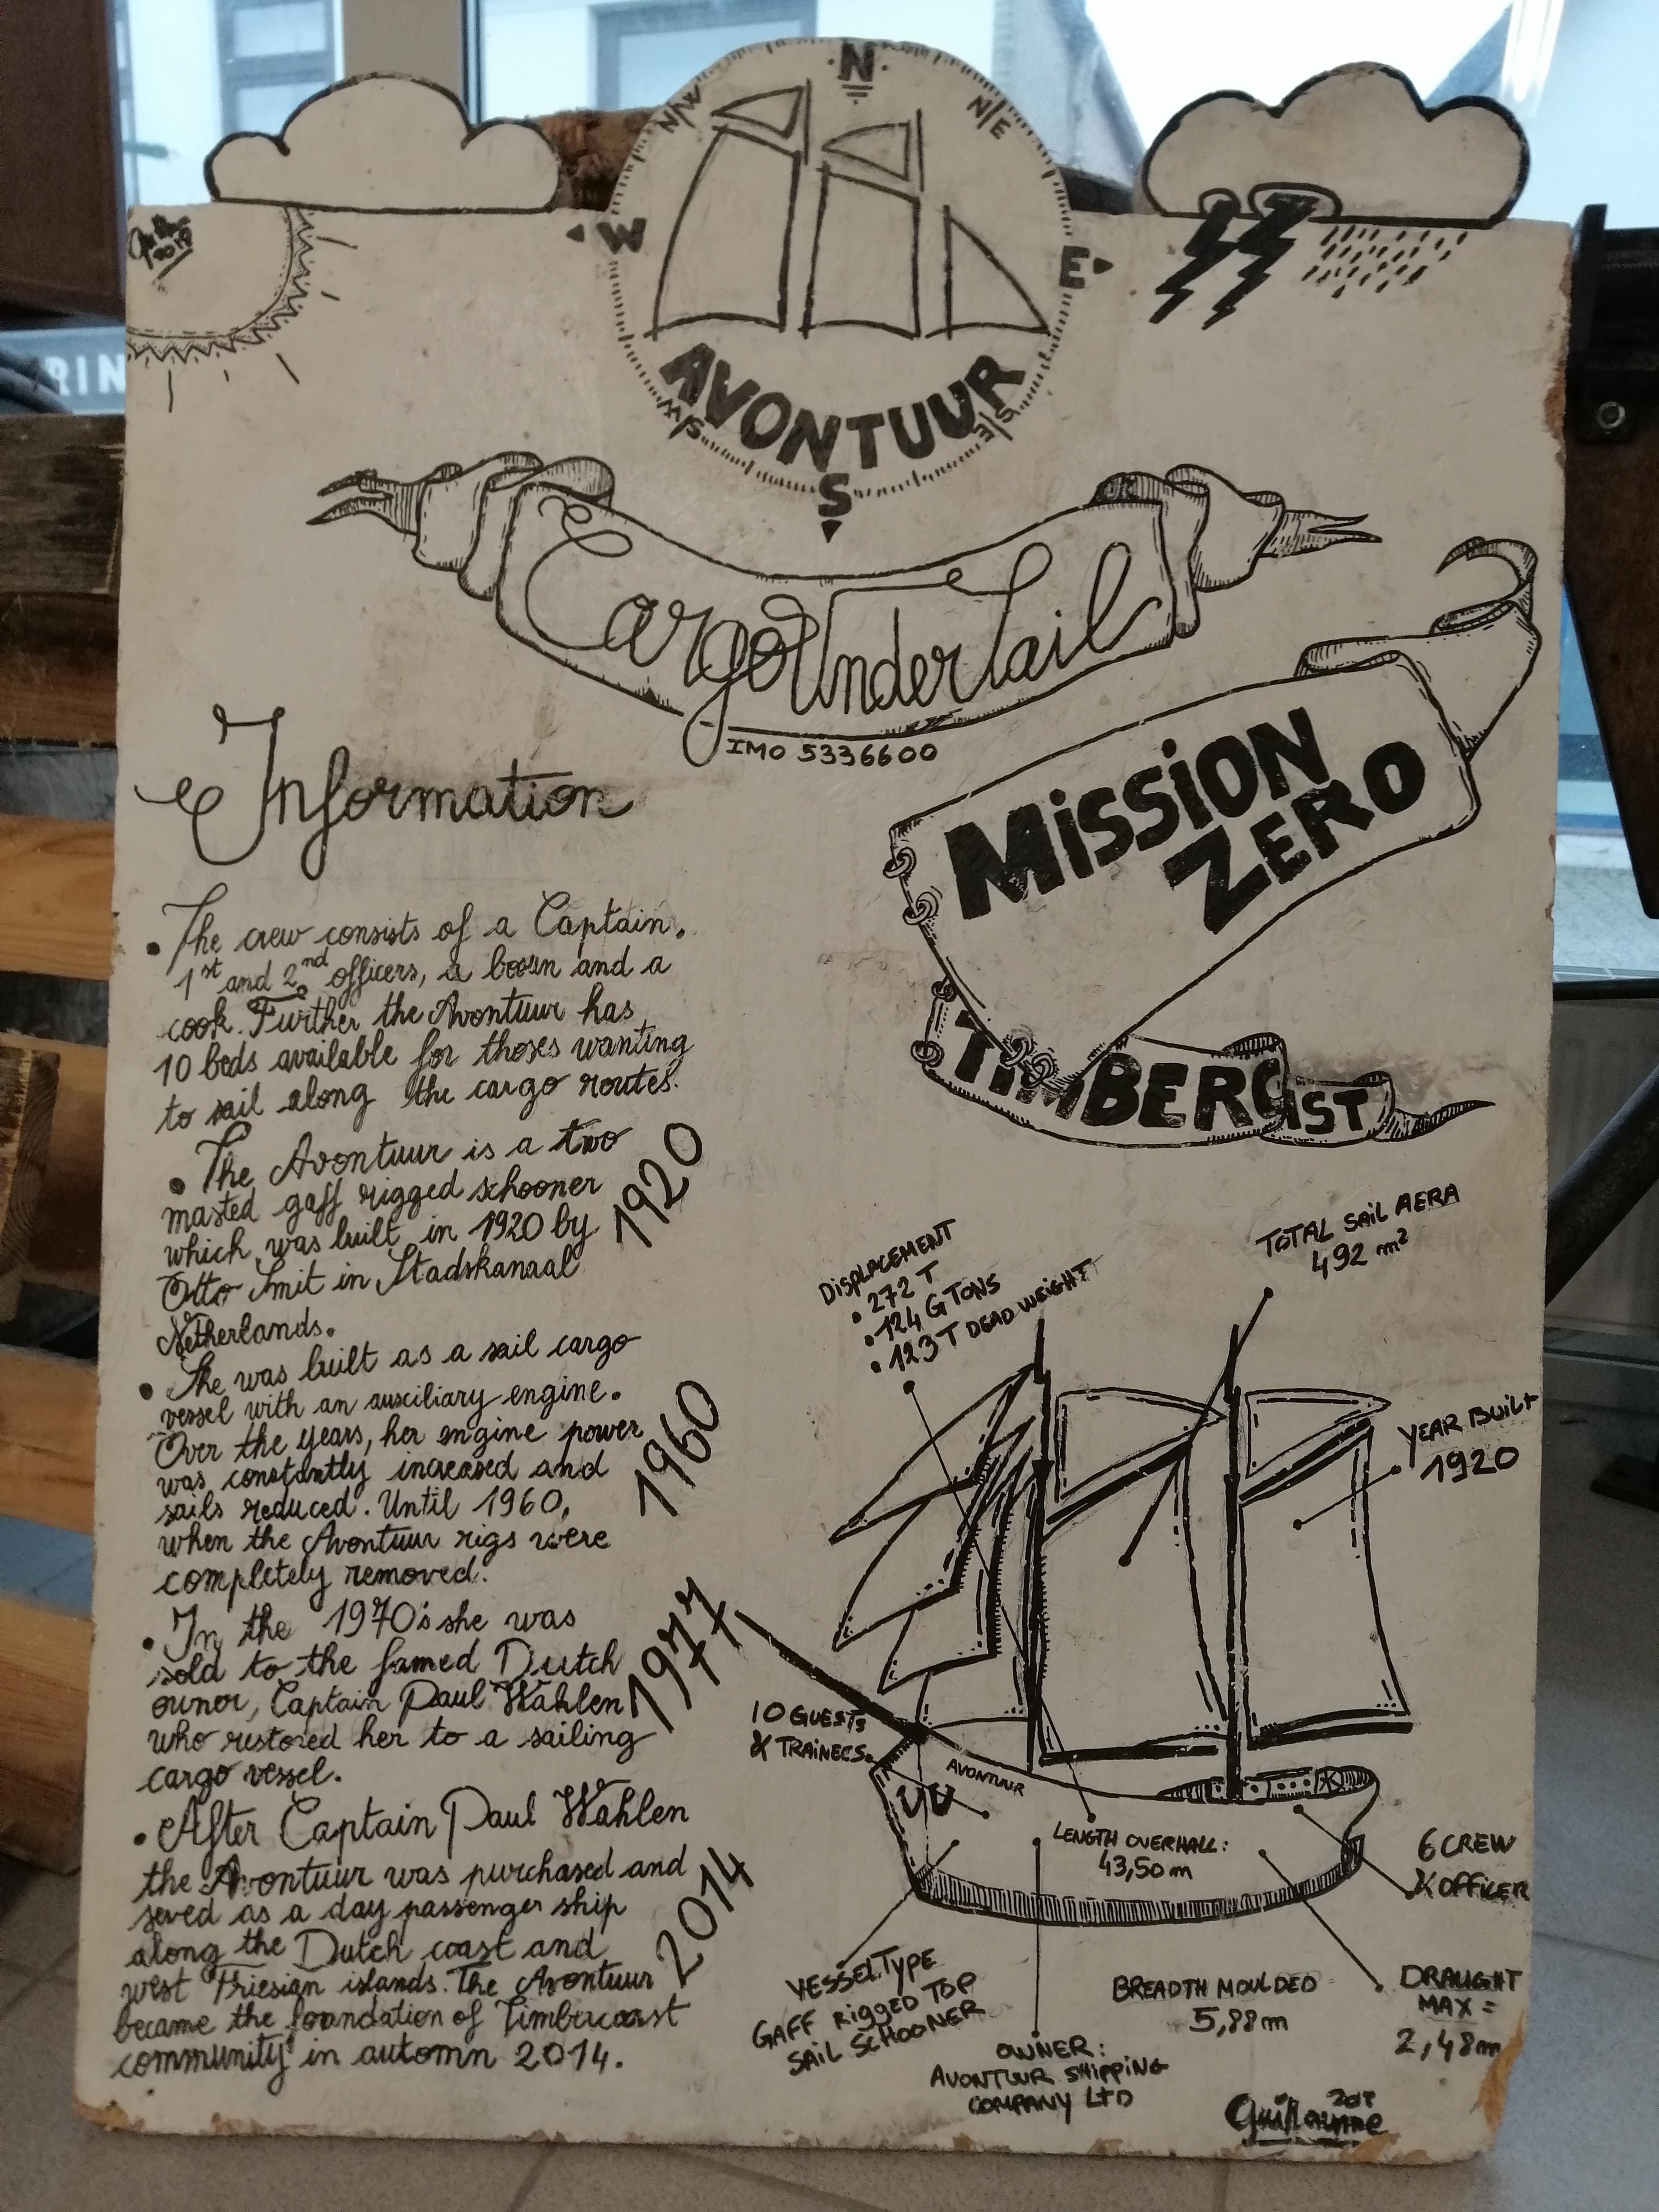 N
N/W
N/E
W
E
AVONTUUR
S
Cargo Under Sail
IMO 5336600
MiSSiON
ZERO
TIMBERC
ST
Information
• The crew consists of a Captain.
1st and 2nd officers, a
and a
cook. Further the Avontuur has
10 beds available for thoses wanting
to sail along the cargo routes.
• The Avontuur is a two
masted gaff rigged schooner
which was built in 1920 by
Otto Smit in Stadskanaal
Netherlands.
1920
• She was built as a sail cargo
vessel with an auxciliary engine.
Over the years, her engine power
was constantly increased and
sails reduced. Until 1960,
when the Avontuur rigs were
completely removed.
1960
• In the 1970's she was
sold to the famed Dutch
owner, Captain Paul Wahlen
who restored her to a sailing
cargo vessel.
1977
• After Captain Paul Wahlen
the Avontuur was purchased and
seved as a day passenger ship
along the Dutch coast and
west Friesign islands. The Avontuur
became the foundation of Timbercoast
community in automn 2014.
2014
DiSPLACEMENT
• 272 T
• 124 G TONS
• 123 T DEAD WEIGHT
TOTAL SAiL AERA
492 m²
YEAR BUiLt
1920
10 GUESTS
& TRAiNEES.
AVONTUUR
LENGTH OVERHALL:
43,50 m
6 CREW
& OFFICER
VESSEL TYPE
GAFF RiggED TOP
SAiL SCHOONER
BREADTH MOULDED
5,88m
DRAUGHT
MAX =
2,48m
OWNER:
AVONTUUR SHiPPiNG
COMPANY LtD
Guillaume